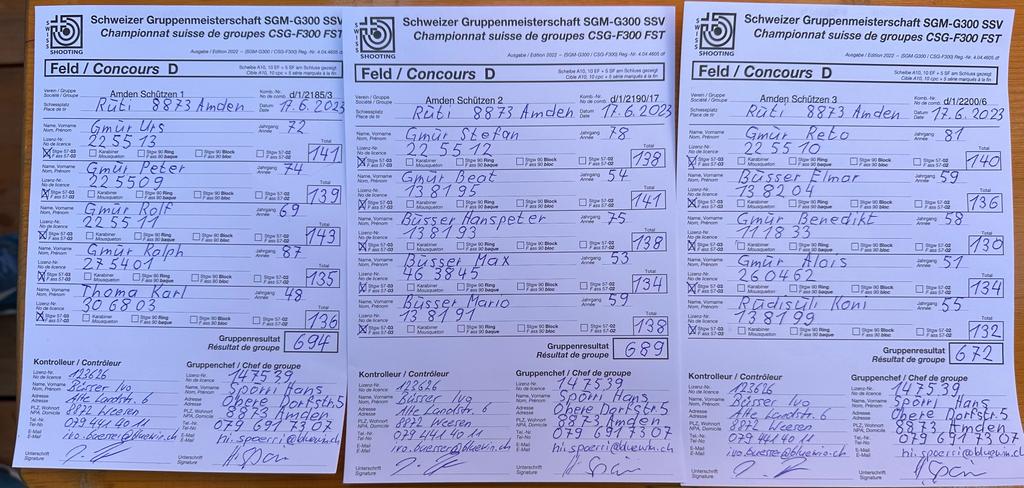 SWISS
SHOOTING
Schweizer Gruppenmeisterschaft SGM-G300 SSV
Championnat suisse de groupes CSG-F300 FST
Ausgabe / Edition 2022 – (SGM-G300 / CSG-F300) Reg.-Nr. 4.04.4605 df
Feld / Concours D
Scheibe A10, 10 EF + 5 SF am Schluss gezeigt
Cible A10, 10 cpc + 5 série marqués à la fin
Verein / Gruppe
Société / Groupe
Amden Schützen 1
Komb.-Nr.
No de comb.
d/1/2185/3
Schiessplatz
Place de tir
Rüti 8873 Amden
Datum
Date
17.6.2023
Name, Vorname
Nom, Prénom
Gmür Urs
Jahrgang
Année
72
Lizenz-Nr.
No de licence
225513
Total
Stgw 57-03
F ass 57-03
Karabiner
Mousqueton
Stgw 90 Ring
F ass 90 bague
Stgw 90 Block
F ass 90 bloc
Stgw 57-02
F ass 57-02
141
Gmür Peter
74
225509
139
Gmür Rolf
69
225511
143
Gmür Ralph
87
275401
135
Thoma Karl
48
306803
136
Gruppenresultat
Résultat de groupe
694
Kontrolleur / Contrôleur
Gruppenchef / Chef de groupe
Lizenz-Nr.
No de licence
123626
147539
Name, Vorname
Nom, Prénom
Büsser Ivo
Spörri Hans
Adresse
Adresse
Alte Landstr. 6
Obere Dorfstr. 5
PLZ, Wohnort
NPA, Domicile
8872 Weesen
8873 Amden
Tel.-Nr.
No Tel.
079 441 40 11
079 691 73 07
E-Mail
E-Mail
ivo.buesser@bluewin.ch
hi.spoerri@bluewin.ch
Unterschrift
Signature
Schweizer Gruppenmeisterschaft SGM-G300 SSV
Championnat suisse de groupes CSG-F300 FST
SWISS
SHOOTING
Ausgabe / Edition 2022 – (SGM-G300 / CSG-F300) Reg.-Nr. 4.04.4605 df
Feld / Concours D
Scheibe A10, 10 EF + 5 SF am Schluss gezeigt
Cible A10, 10 cpc + 5 série marqués à la fin
Amden Schützen 2
d/1/2190/17
Rüti 8873 Amden
17.6.2023
Gmür Stefan
78
225512
138
Gmür Beat
54
138195
141
Büsser Hanspeter
75
138193
138
Büsser Max
53
463845
134
Büsser Mario
59
138191
138
Gruppenresultat
Résultat de groupe
689
Kontrolleur / Contrôleur
Gruppenchef / Chef de groupe
123626
147539
Büsser Ivo
Spörri Hans
Alte Landstr. 6
Obere Dorfstr. 5
8872 Weesen
8873 Amden
079 441 40 11
079 691 73 07
ivo.buesser@bluewin.ch
hi.spoerri@bluewin.ch
Schweizer Gruppenmeisterschaft SGM-G300 SSV
Championnat suisse de groupes CSG-F300 FST
SWISS
SHOOTING
Ausgabe / Edition 2022 – (SGM-G300 / CSG-F300) Reg.-Nr. 4.04.4605 df
Feld / Concours D
Scheibe A10, 10 EF + 5 SF am Schluss gezeigt
Cible A10, 10 cpc + 5 série marqués à la fin
Amden Schützen 3
d/1/2200/6
Rüti 8873 Amden
17.6.2023
Gmür Reto
81
225510
140
Büsser Elmar
59
138204
136
Gmür Benedikt
58
111833
130
Gmür Alois
51
260462
134
Rüdisüli Koni
55
138199
132
Gruppenresultat
Résultat de groupe
672
Kontrolleur / Contrôleur
Gruppenchef / Chef de groupe
123626
147539
Büsser Ivo
Spörri Hans
Alte Landstr. 6
Obere Dorfstr. 5
8872 Weesen
8873 Amden
079 441 40 11
079 691 73 07
ivo.buesser@bluewin.ch
hi.spoerri@bluewin.ch